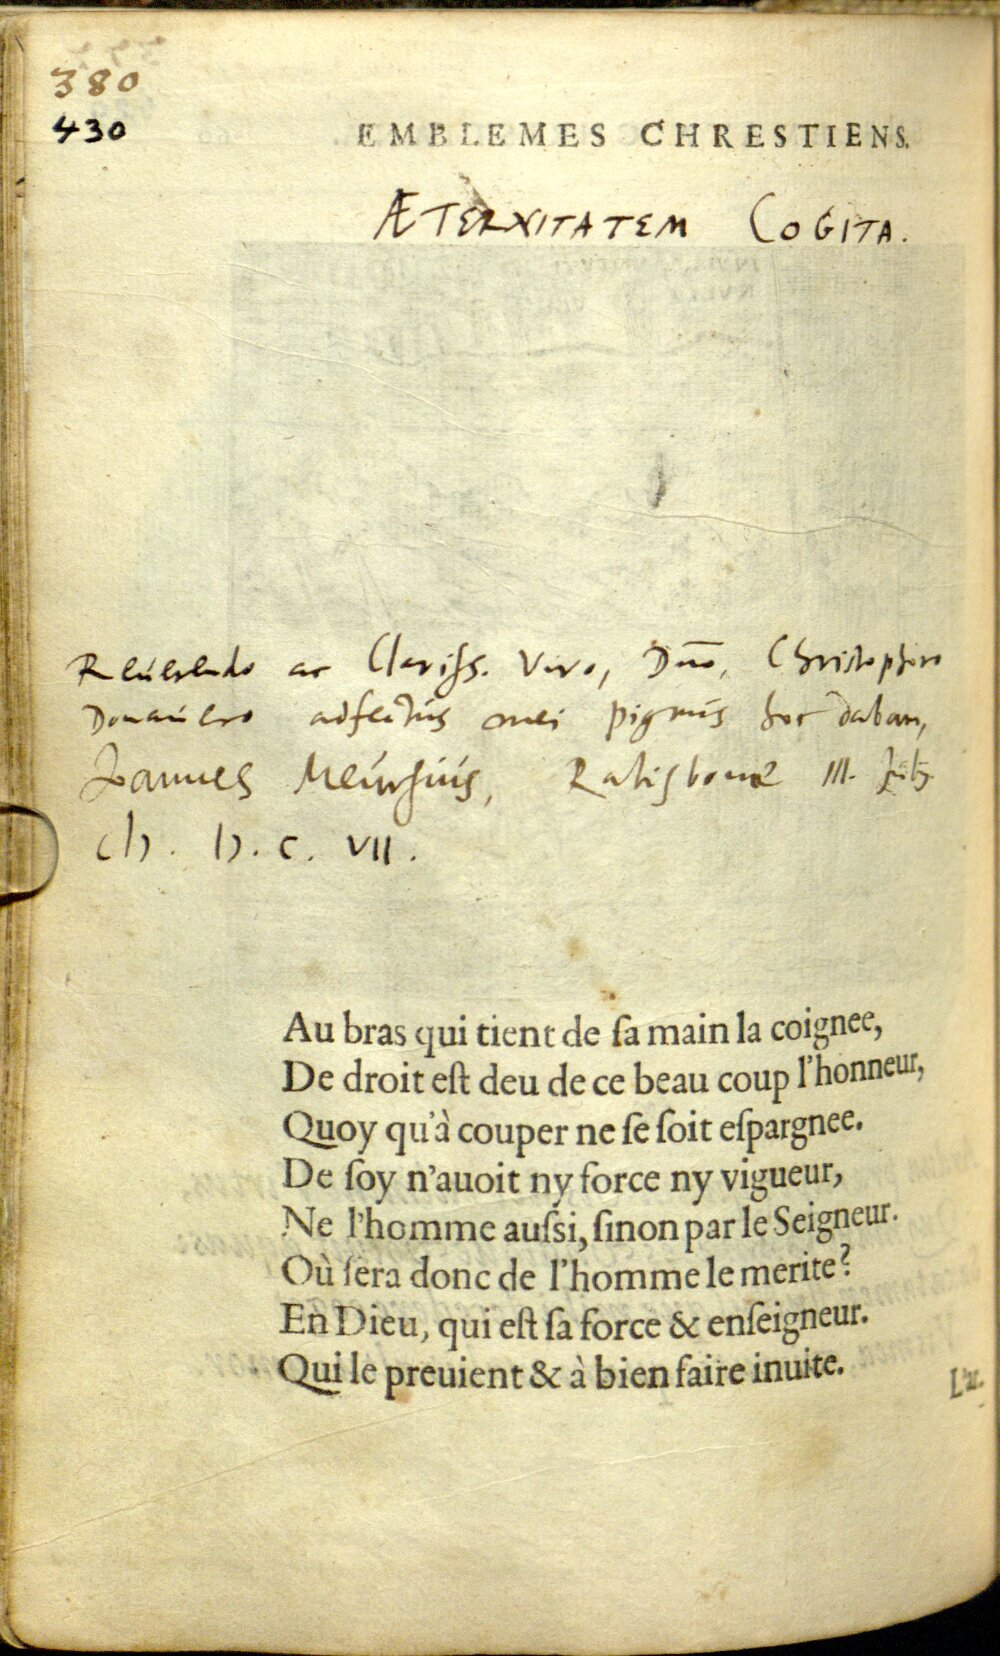 380
430
EMBLEMES CHRESTIENS.
ÆTERNITATEM COGITA.
Reuerendo ac Clariſs. Viro, Dn̄o, Christophoro
Donauero adfectus mei pignus hoc dabam,
Joannes Meursius, Ratisbonæ III. Julij.
cIↃ. IↃ. C. VII.
Au bras qui tient de ſa main la coignee,
De droit eſt deu de ce beau coup l'honneur,
Quoy qu'à couper ne ſe ſoit eſpargnee.
De ſoy n'auoit ny force ny vigueur,
Ne l'homme auſsi, ſinon par le Seigneur.
Où ſera donc de l'homme le merite?
En Dieu, qui eſt ſa force & enſeigneur.
Qui le preuient & à bien faire inuite.